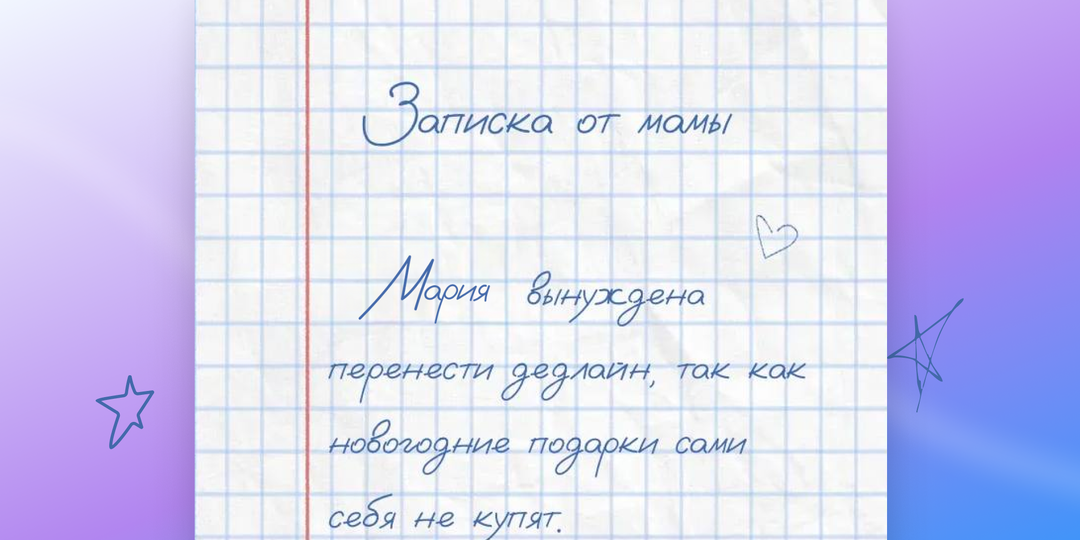 Записка от мамы
Мария вынуждена
перенести дедлайн, так как
новогодние подарки сами
себя не купят.